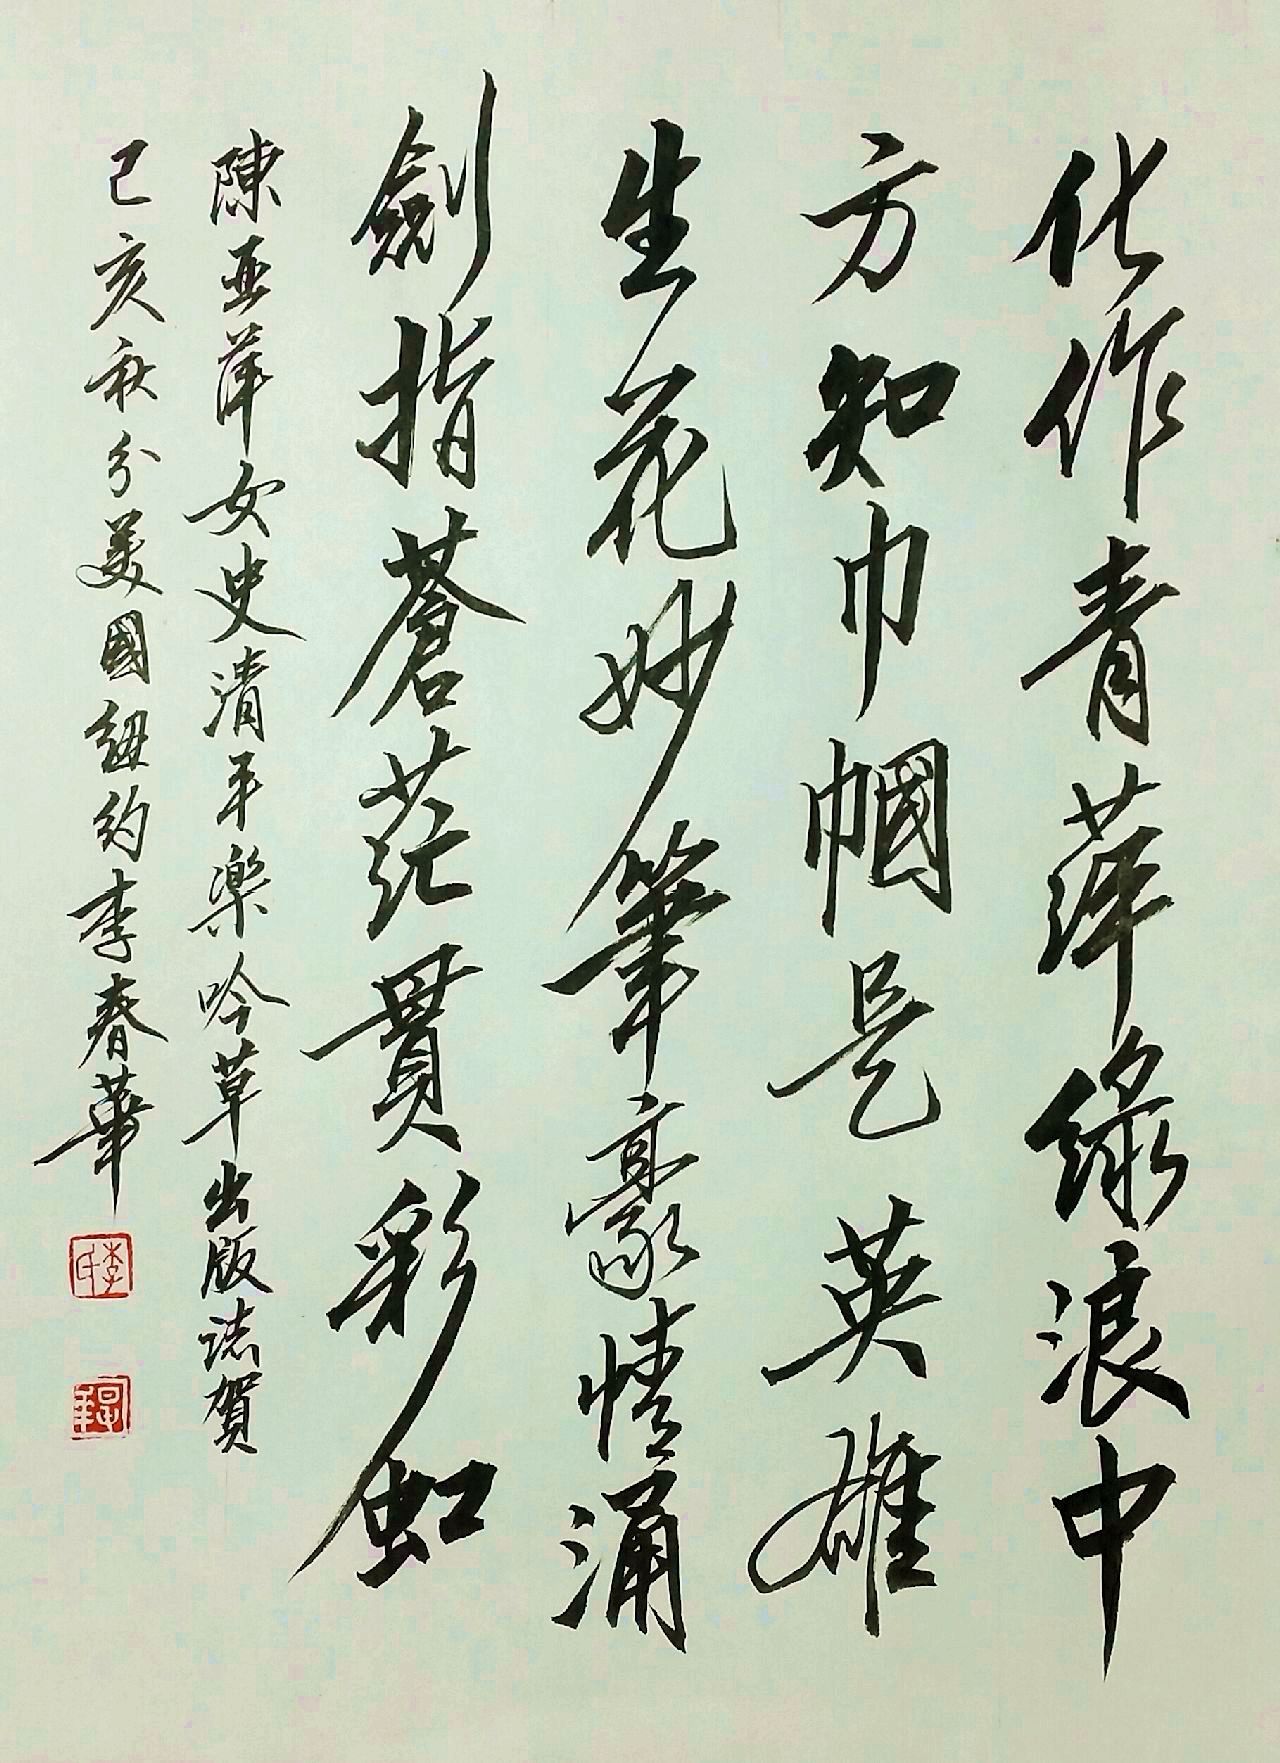 化作青萍綠浪中
方知巾幗是英雄
生花妙筆豪情涌
劍指蒼茫貫彩虹
陳亚萍女史清平樂吟草出版誌賀
己亥秋分美國紐約李春華
李氏